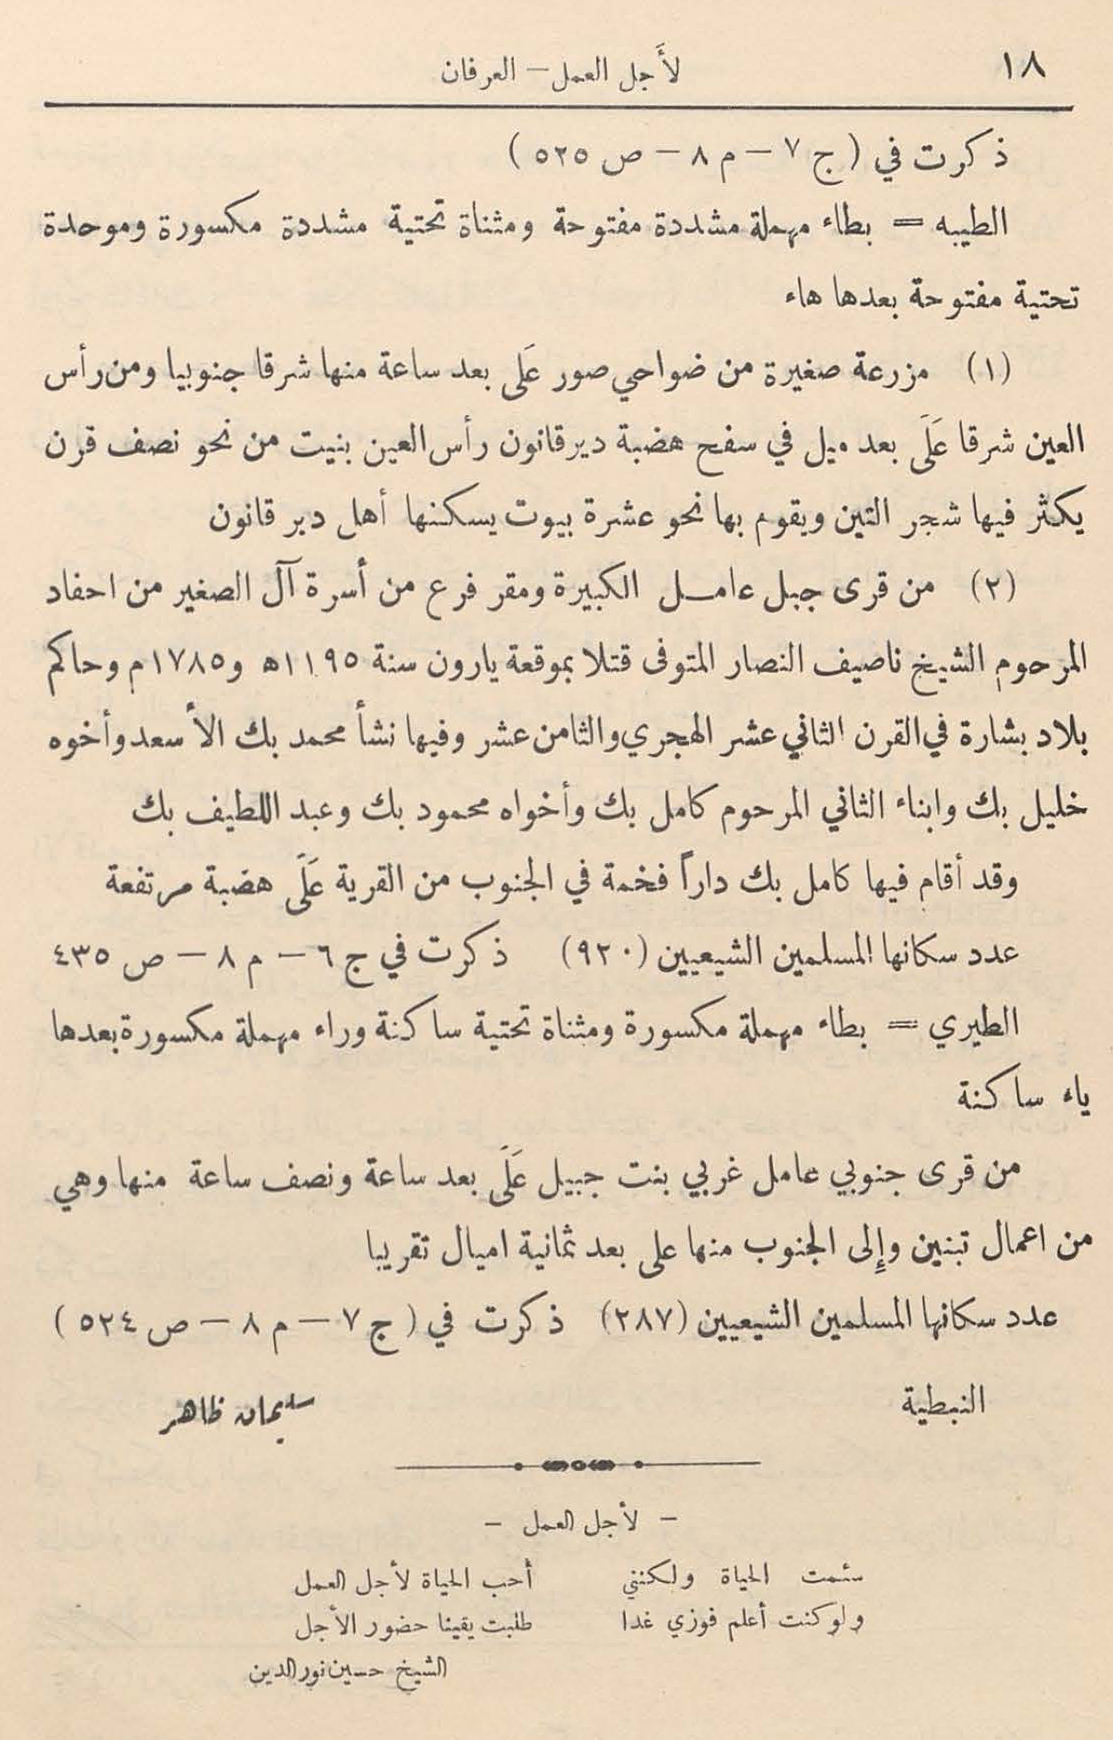 ١٨
لأَجل العمل — العرفان
ذكرت في (ج ٧ — م ٨ — ص ٥٢٥)
الطيبه = بطاء مهملة مشددة مفتوحة ومثناة تحتية مشددة مكسورة وموحدة
تحتية مفتوحة بعدها هاء
(١) مزرعة صغيرة من ضواحي صور عَلَى بعد ساعة منها شرقا جنوبيا ومن رأس
العين شرقا عَلَى بعد ميل في سفح هضبة ديرقانون رأس العين بنيت من نحو نصف قرن
يكثر فيها شجر التين ويقوم بها نحو عشرة بيوت يسكنها أهل دير قانون
(٢) من قرى جبل عامل الكبيرة ومقر فرع من أسرة آل الصغير من احفاد
المرحوم الشيخ ناصيف النصار المتوفى قتلا بموقعة يارون سنة ١١٩٥ه و١٧٨٥م وحاكم
بلاد بشارة في القرن الثاني عشر الهجري والثامن عشر وفيها نشأ محمد بك الأسعد وأخوه
خليل بك وابناء الثاني المرحوم كامل بك وأخواه محمود بك وعبد اللطيف بك
وقد أقام فيها كامل بك داراً فخمة في الجنوب من القرية عَلَى هضبة مرتفعة
عدد سكانها المسلمين الشيعيين (٩٢٠) ذكرت في ج ٦ — م ٨ — ص ٤٣٥
الطيري = بطاء مهملة مكسورة ومثناة تحتية ساكنة وراء مهملة مكسورة بعدها
ياء ساكنة
من قرى جنوبي عامل غربي بنت جبيل عَلَى بعد ساعة ونصف ساعة منها وهي
من اعمال تبنين وإِلى الجنوب منها على بعد ثمانية اميال تقريبا
عدد سكانها المسلمين الشيعيين (٢٨٧) ذكرت في (ج ٧ — م ٨ — ص ٥٢٤)
النبطية سليمان ظاهر
— لأجل العمل —
سئمت الحياة ولكنني أحب الحياة لأجل العمل
ولوكنت أعلم فوزي غدا طلبت يقينا حضور الأجل
الشيخ حسين نور الدين